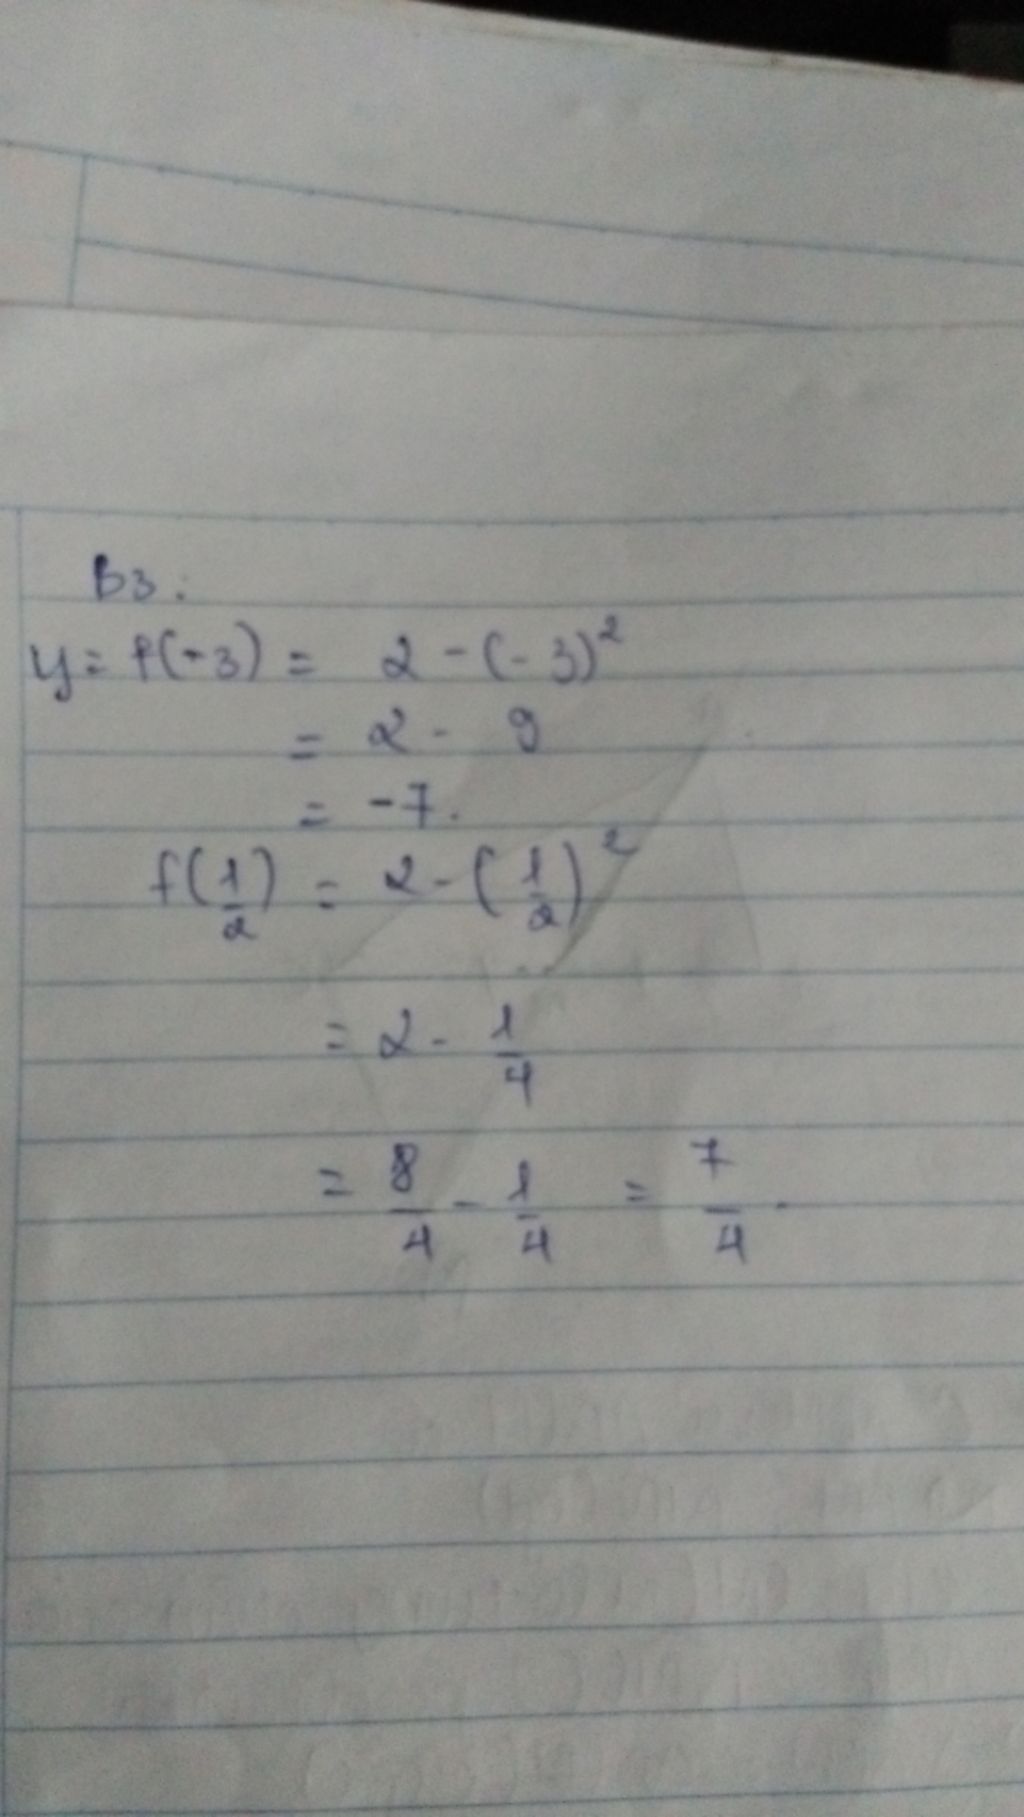 B3:
y = f(-3) = 2 - (-3)²
= 2 - 9
= -7.
f(1/2) = 2 - (1/2)²
= 2 - 1/4
= 8/4 - 1/4 = 7/4.